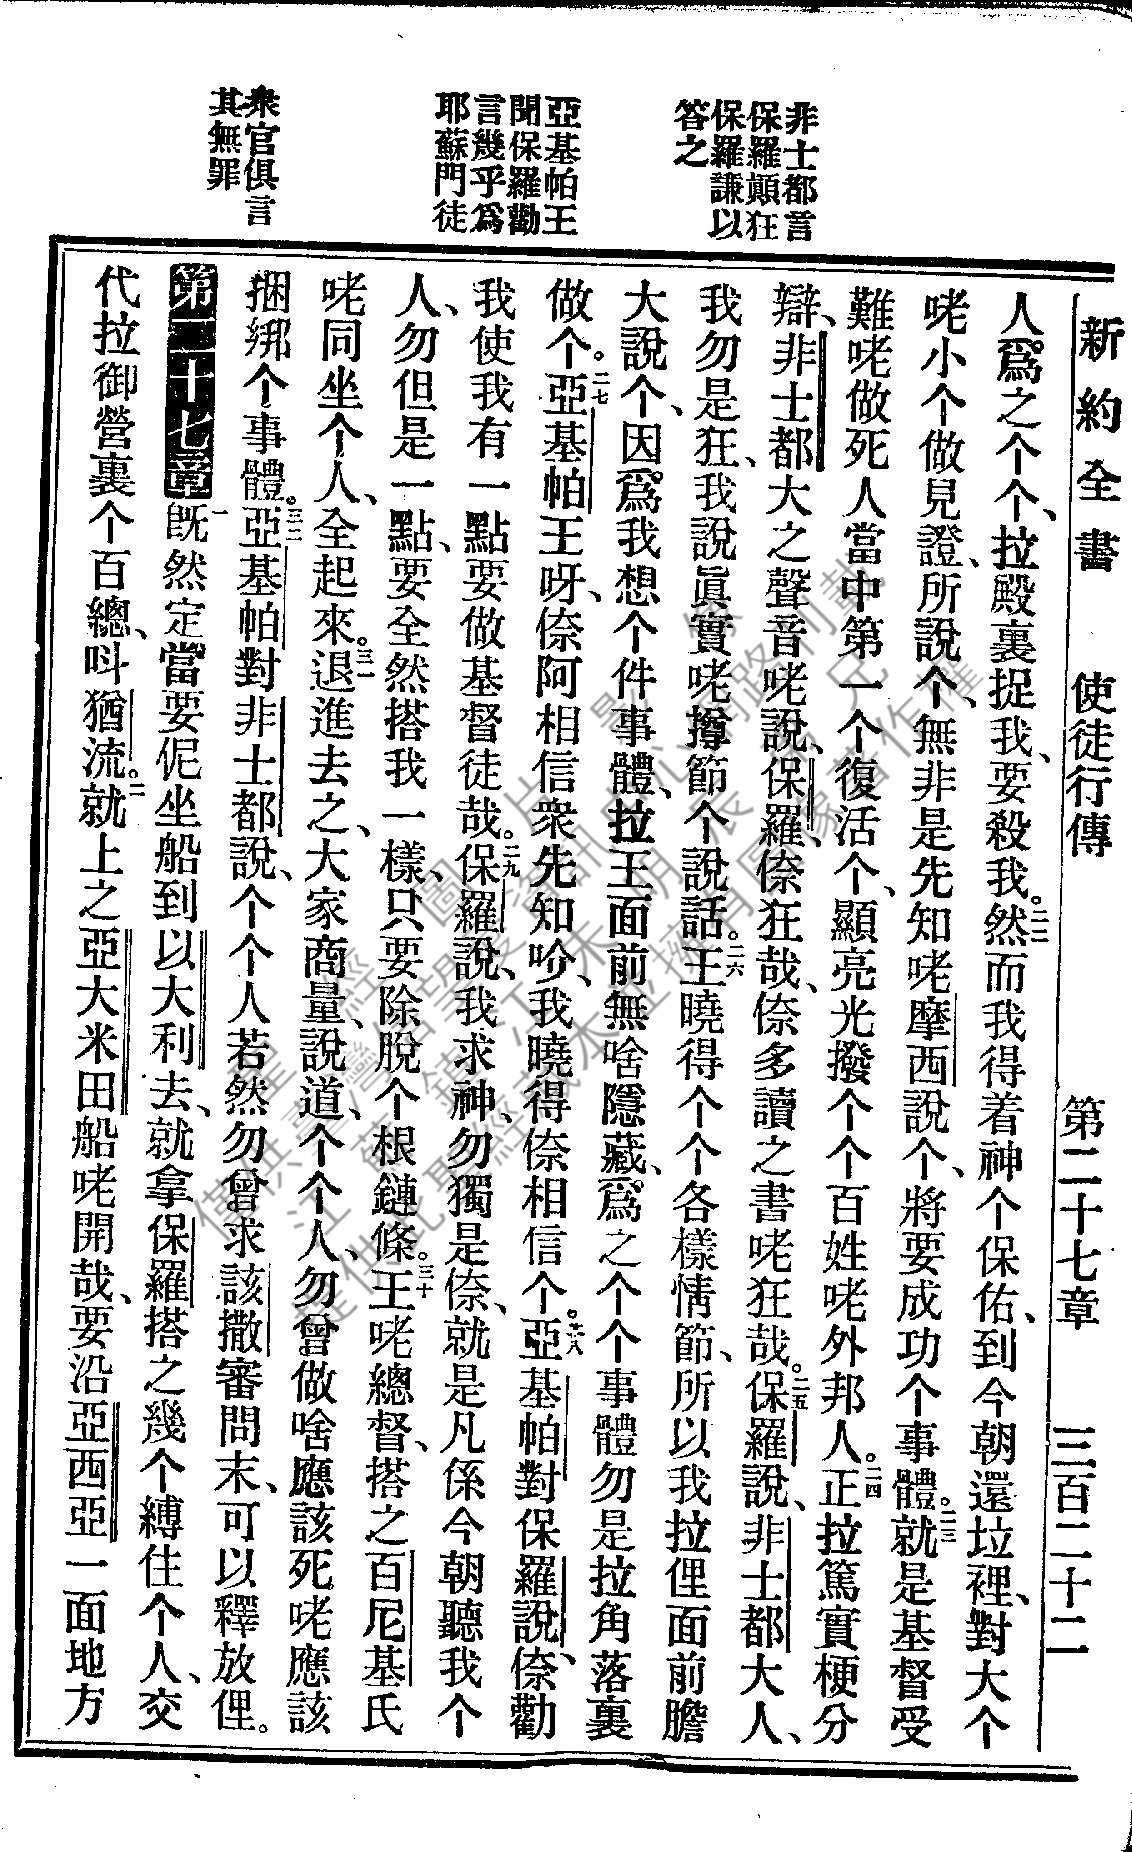 非士都言
保羅顚狂
保羅謙以
答之
亞基帕王
聞保羅勸
言幾乎爲
耶蘇門徒
衆官俱言
其無罪
新約全書 使徒行傳 第二十七章 三百二十二
人爲之个个、拉殿裏捉我、要殺我。二二然而我得着神个保佑、到今朝還垃裡、對大个
咾小个做見證、所說个、無非是先知咾摩西說个、將要成功个事體。二三就是基督受
難咾做死人當中第一个復活个、顯亮光撥个个百姓咾外邦人。二四正拉篤實梗分
辯、非士都大之聲音咾說、保羅、倷狂哉、倷多讀之書咾狂哉。二五保羅說、非士都大人、
我勿是狂、我說眞實咾撙節个說話。二六王曉得个个各樣情節、所以我拉俚面前膽
大說个、因爲我想个件事體、拉王面前無啥隱藏、爲之个个事體勿是拉角落裏
做个。二七亞基帕王呀、倷阿相信衆先知吤、我曉得倷相信个。二八亞基帕對保羅說、倷勸
我使我有一點要做基督徒哉。二九保羅說、我求神、勿獨是倷、就是凡係今朝聽我个
人、勿但是一點、要全然搭我一樣、只要除脫个根鏈條。三十王咾總督、搭之百尼基氏
咾同坐个人、全起來。三一退進去之、大家商量、說道、个个人、勿曾做啥應該死咾應該
捆綁个事體。三二亞基帕對非士都說、个个人若然勿曾求該撒審問末、可以釋放俚。
第二十七章 一旣然定當要伲坐船到以大利去、就拿保羅搭之幾个縛住个人、交
代拉御營裏个百總、呌猶流。二就上之亞大米田船咾開哉、要沿亞西亞一面地方